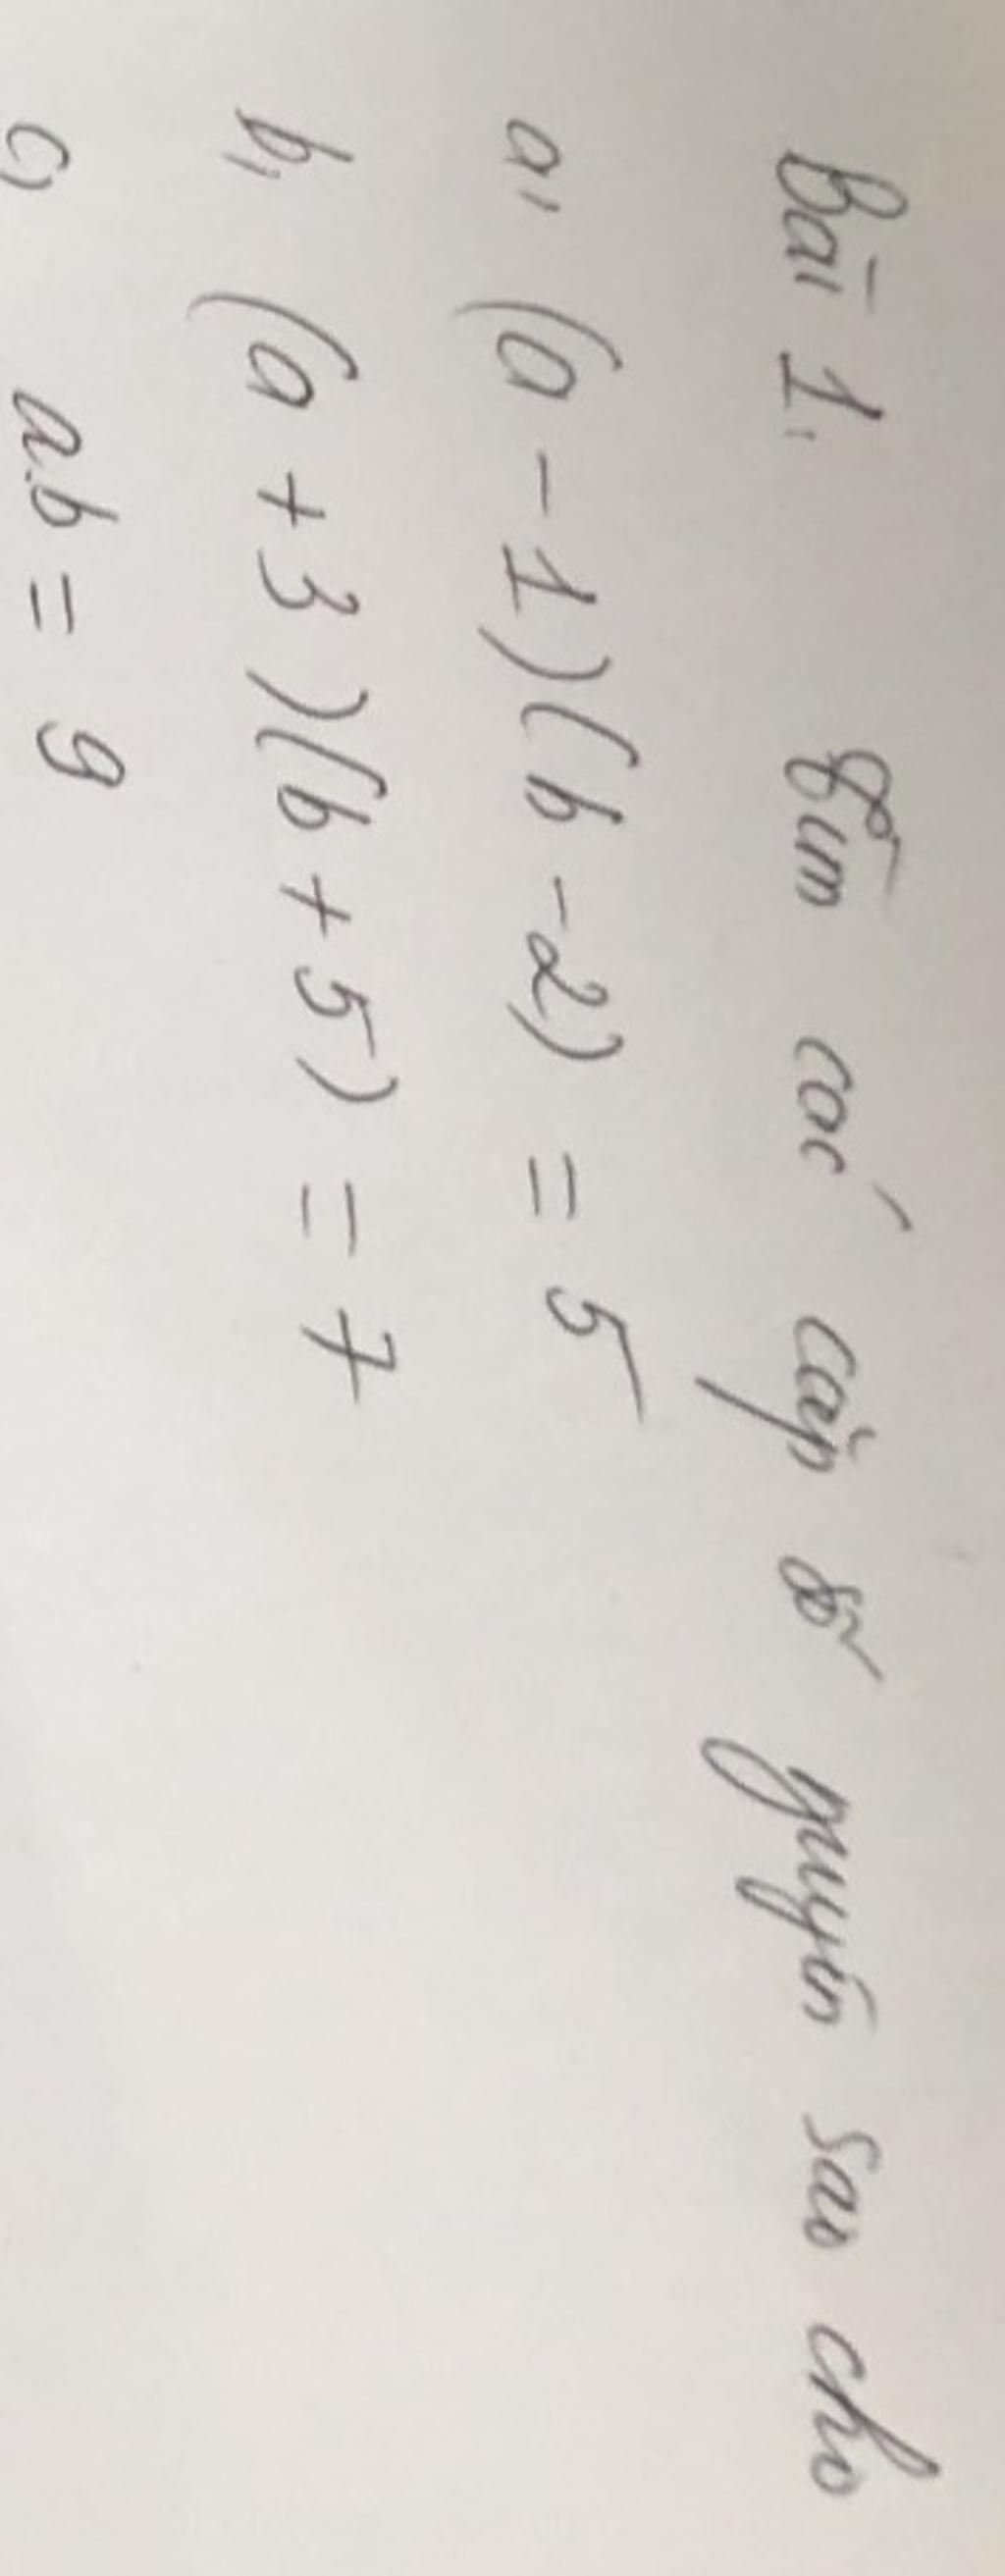 Bài 1: Tìm các cặp số nguyên sao cho
a, (a - 1)(b - 2) = 5
b, (a + 3)(b + 5) = 7
c, a.b = 9